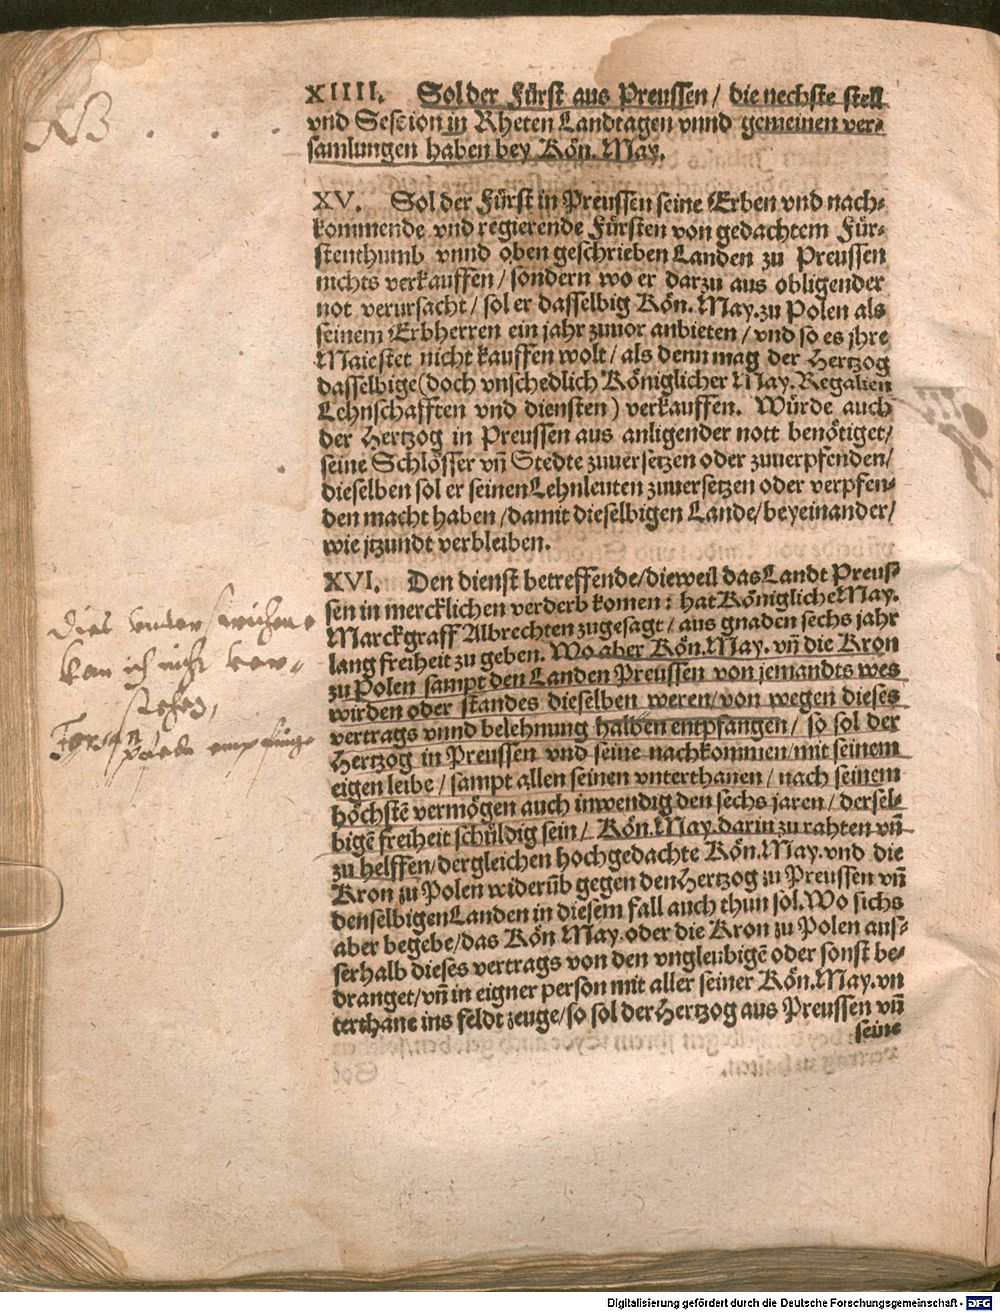 NB . . .
XIIII. Sol der Fürst aus Preussen / die nechste stell
vnd Session in Rheten Landtagen vnnd gemeinen ver-
samlungen haben bey Kön. May.
XV. Sol der Fürst in Preussen seine Erben vnd nach-
kommende vnd regierende Fürsten von gedachtem Für-
stenthumb vnnd oben geschrieben Landen zu Preussen
nichts verkauffen / sondern wo er darzu aus obligender
not verursacht / sol er dasselbig Kön. May. zu Polen als
seinem Erbherren ein jahr zuuor anbieten / vnd so es jhre
Maiestet nicht kauffen wolt / als denn mag der Hertzog
dasselbige (doch vnschedlich Königlicher May. Regalien
Lehnschafften vnd diensten) verkauffen. Würde auch
der Hertzog in Preussen aus anligender nott benötiget /
seine Schlösser vñ Stedte zuuersetzen oder zuuerpfenden /
dieselben sol er seinen Lehnleuten zuuersetzen oder verpfen-
den macht haben / damit dieselbigen Lande / beyeinander /
wie jtzundt verbleiben.
XVI. Den dienst betreffende / dieweil das Landt Preus-
sen in mercklichen verderb komen : hat Königliche May.
Marckgraff Albrechten zugesagt / aus gnaden sechs jahr
lang freiheit zu geben. Wo aber Kön. May. vñ die Kron
zu Polen sampt den Landen Preussen von jemandts wes
wirden oder standes dieselben weren / von wegen dieses
vertrags vnnd belehnung halben entpfangen / so sol der
Hertzog in Preussen vnd seine nachkommen / mit seinem
eigen leibe / sampt allen seinen vnterthanen / nach seinem
höchstẽ vermögen auch inwendig den sechs jaren / dersel-
bigẽ freiheit schüldig sein / Kön. May. darin zu rahten vñ
zu helffen / dergleichen hochgedachte Kön. May. vnd die
Kron zu Polen widerüb gegen den Hertzog zu Preussen vñ
denselbigen Landen in diesem fall auch thun sol. Wo sichs
aber begebe / das Kön May. oder die Kron zu Polen aus-
serhalb dieses vertrags von den vngleubigẽ oder sonst be-
dranget / vñ in eigner person mit aller seiner Kön. May. vn
terthane ins feldt zeuge / so sol der Hertzog aus Preussen vñ
seine
Dies unterstrichene
kan ich nicht ver-
stehen,
empfinge
Digitalisierung gefördert durch die Deutsche Forschungsgemeinschaft - DFG